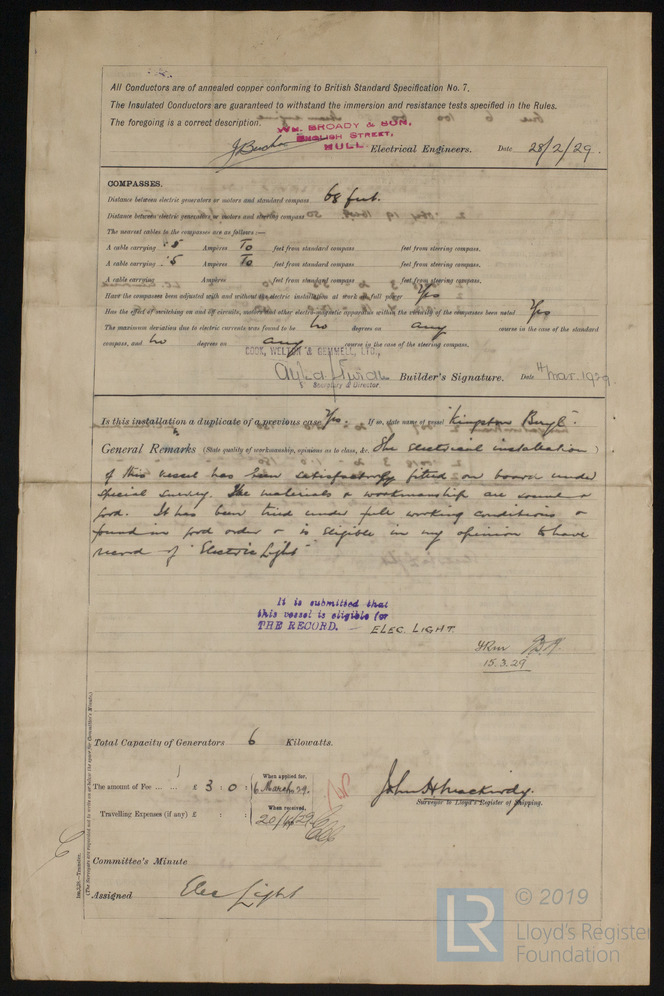 All Conductors are of annealed copper conforming to British Standard Specification No. 7.
The Insulated Conductors are guaranteed to withstand the immersion and resistance tests specified in the Rules.
The foregoing is a correct description.
WM. BROADY & SON,
ENGLISH STREET,
HULL.
Electrical Engineers. Date 28/2/29.
COMPASSES.
Distance between electric generators or motors and standard compass 68 feet.
Distance between electric generators or motors and steering compass
The nearest cables to the compasses are as follows:—
A cable carrying .5 Ampères To feet from standard compass feet from steering compass.
A cable carrying .5 Ampères To feet from standard compass feet from steering compass.
A cable carrying Ampères feet from standard compass feet from steering compass.
Have the compasses been adjusted with and without the electric installation at work at full power Yes
Has the effect of switching on and off circuits, motors and other electro-magnetic apparatus within the vicinity of the compasses been noted Yes
The maximum deviation due to electric currents was found to be no degrees on any course in the case of the standard
compass, and no degrees on any course in the case of the steering compass.
COOK, WELTON & GEMMELL, LTD.,
Secretary & Director.
Builder's Signature. Date 4 Mar. 1929.
Is this installation a duplicate of a previous case Yes. If so, state name of vessel "Kingston Beryl".
General Remarks (State quality of workmanship, opinions as to class, &c. The electrical installation
of this vessel has been satisfactorily fitted on board under
special survey. The materials & workmanship are sound &
good. It has been tried under full working conditions &
found in good order & is eligible in my opinion to have
record of "Electric Light"
It is submitted that
this vessel is eligible for
THE RECORD. — ELEC. LIGHT.
15.3.29
Total Capacity of Generators 6 Kilowatts.
The amount of Fee ... ... £ 3 : 0 :
When applied for,
6 March 29.
Travelling Expenses (if any) £ : :
When received,
20/4/29
Surveyor to Lloyd's Register of Shipping.
Committee's Minute
Assigned Elec Light
(The Surveyors are requested not to write on or below the space for Committee's Minute.)
© 2019
LR
Lloyd's Register
Foundation